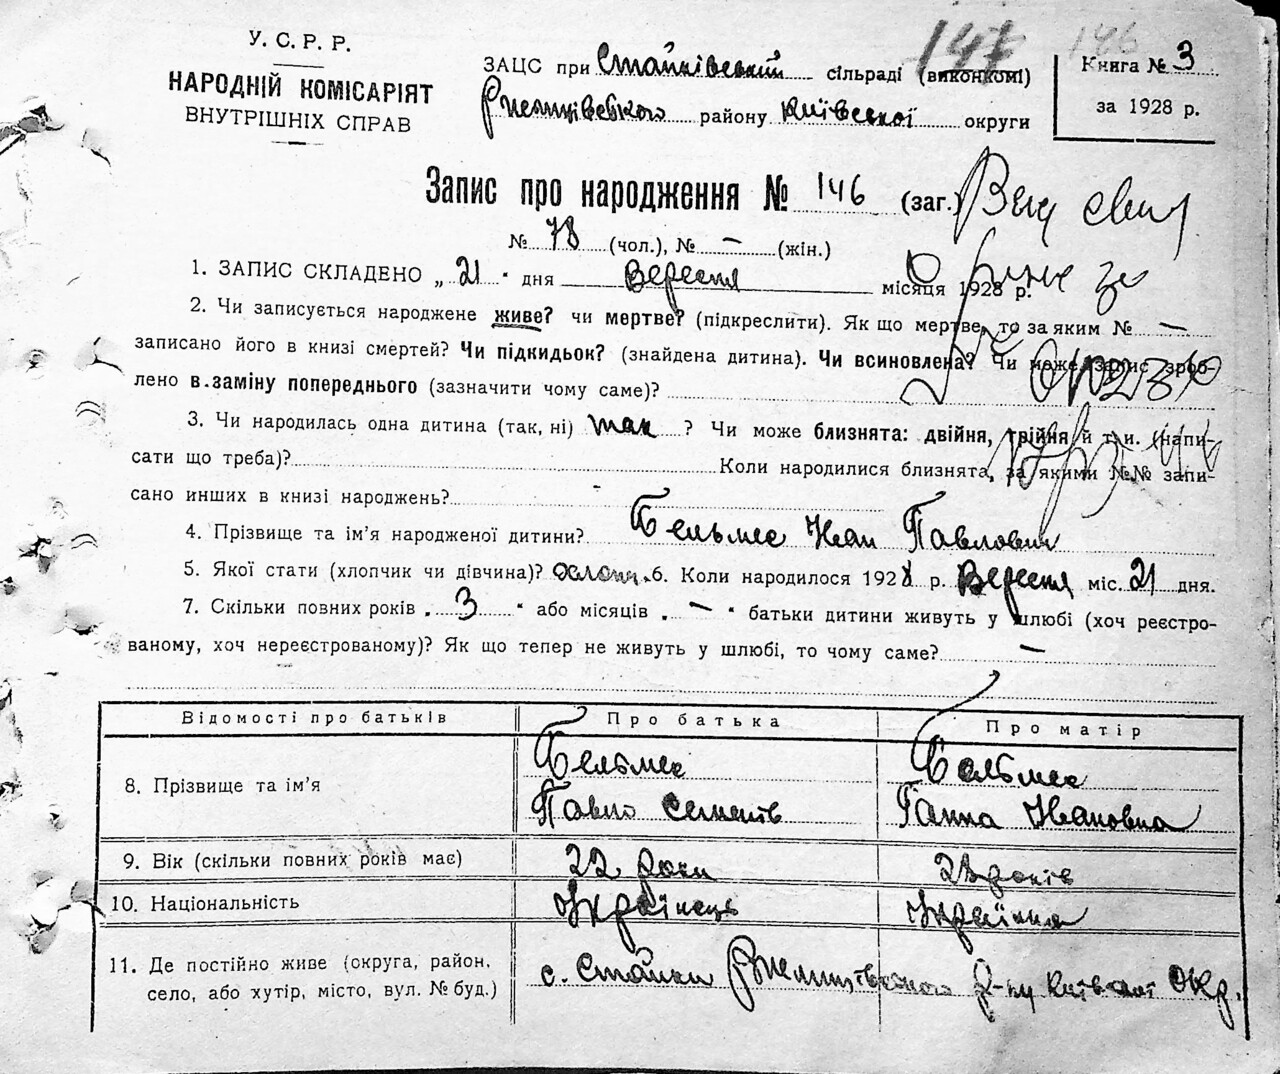 У. С. Р. Р.
НАРОДНІЙ КОМІСАРІЯТ
ВНУТРІШНІХ СПРАВ
ЗАЦС при Стайківський сільраді (виконкомі)
Ржищівського району Київської округи
147 146
Книга № 3
за 1928 р.
Запис про народження № 146 (заг.)
№ 78 (чол.), № — (жін.)
1. ЗАПИС СКЛАДЕНО „ 21 " дня Вересня місяця 1928 р.
2. Чи записується народжене живе? чи мертве? (підкреслити). Як що мертве, то за яким № —
записано його в книзі смертей? Чи підкидьок? (знайдена дитина). Чи всиновлена? Чи може запис зроб-
лено в.заміну попереднього (зазначити чому саме)?
3. Чи народилась одна дитина (так, ні) так ? Чи може близнята: двійня, трійня й т. и. (напи-
сати що треба)? Коли народилися близнята, за якими №№ запи-
сано инших в книзі народжень?
4. Прізвище та ім'я народженої дитини? Бельмес Иван Павлович
5. Якої стати (хлопчик чи дівчина)? хлопч. 6. Коли народилося 1928 р. Вересня міс. 21 дня.
7. Скільки повних років „ 3 " або місяців „ — " батьки дитини живуть у шлюбі (хоч реєстро-
ваному, хоч нереєстрованому)? Як що тепер не живуть у шлюбі, то чому саме? —
Відомості про батьків Про батька Про матір
8. Прізвище та ім'я Бельмес Бельмес
Павло Семенів Ганна Ивановна
9. Вік (скільки повних років має) 22 роки років
10. Національність Українець Українка
11. Де постійно живе (округа, район,
село, або хутір, місто, вул. № буд.) с. Стайки Ржищівського Р-ну Київської Окр.